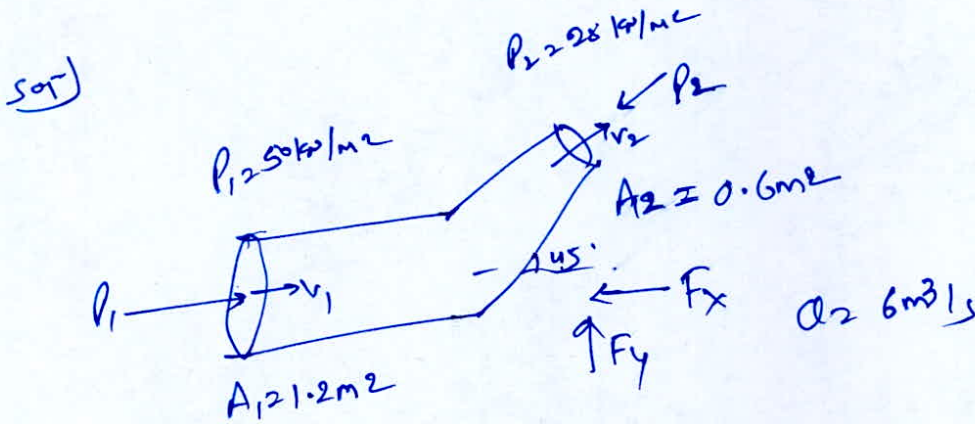 Sol)
P₂ = 28 kN/m²
P₂
V₂
P₁ = 50 kN/m²
A₂ = 0.6m²
45°
P₁
V₁
Fx
Q = 6m³/s
Fy
A₁ = 1.2m²